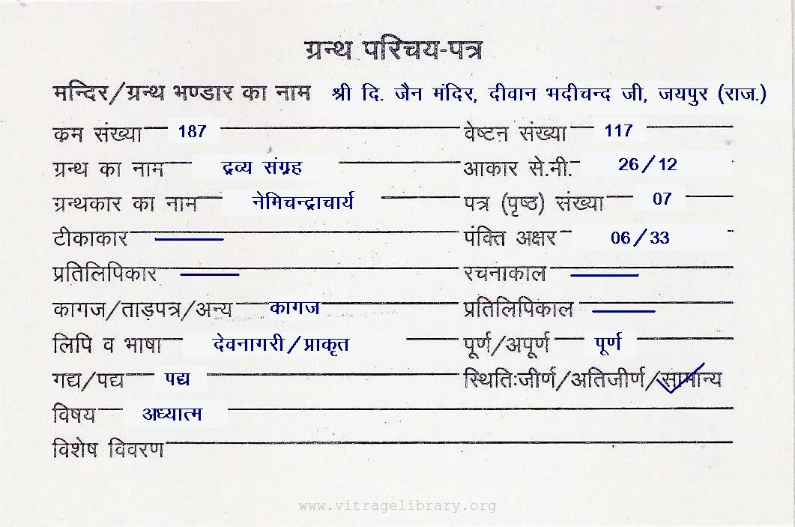 ग्रन्थ परिचय-पत्र
मन्दिर/ग्रन्थ भण्डार का नाम श्री दि. जैन मंदिर, दीवान भदीचन्द जी, जयपुर (राज.)
क्रम संख्या 187 वेष्टन संख्या 117
ग्रन्थ का नाम द्रव्य संग्रह आकार से.मी. 26/12
ग्रन्थकार का नाम नेमिचन्द्राचार्य पत्र (पृष्ठ) संख्या 07
टीकाकार पंक्ति अक्षर 06/33
प्रतिलिपिकार रचनाकाल
कागज/ताड़पत्र/अन्य कागज प्रतिलिपिकाल
लिपि व भाषा देवनागरी/प्राकृत पूर्ण/अपूर्ण पूर्ण
गद्य/पद्य पद्य स्थितिःजीर्ण/अतिजीर्ण/सामान्य
विषय अध्यात्म
विशेष विवरण
www.vitragelibrary.org